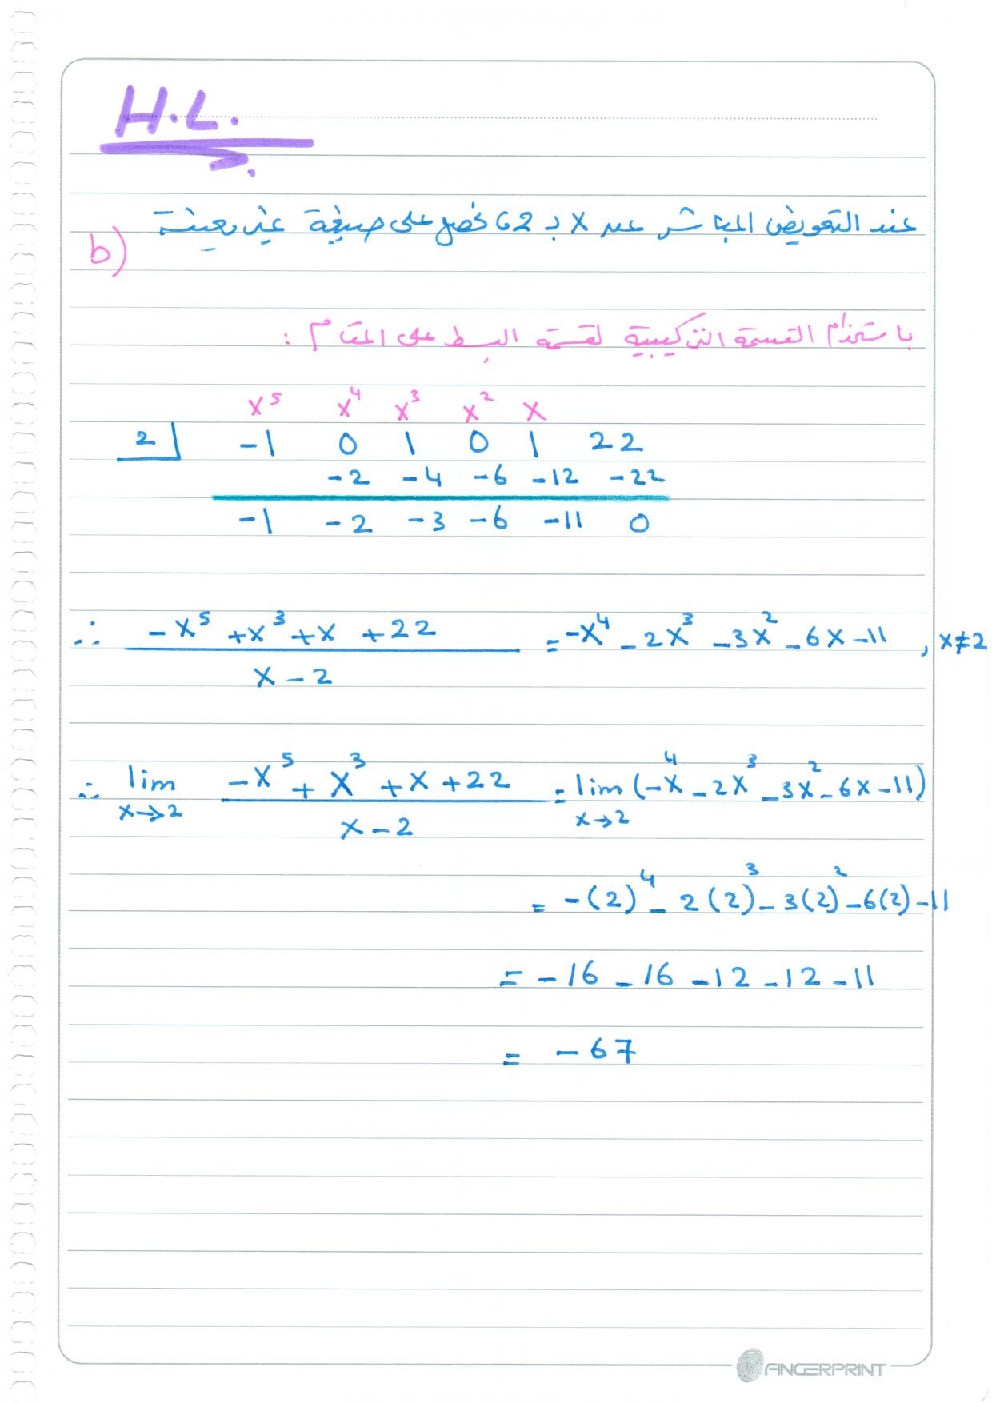 H.L.
b) عند التعويض المباشر عن x بـ 2 ، نحصل على صيغة غير معينة
باستخدام القسمة التركيبية لقسمة البسط على المقام :
x⁵ x⁴ x³ x² x
2 -1 0 1 0 1 22
-2 -4 -6 -12 -22
-1 -2 -3 -6 -11 0
∴ (-x⁵ + x³ + x + 22) / (x - 2) = -x⁴ - 2x³ - 3x² - 6x - 11 , x ≠ 2
∴ lim x→2 (-x⁵ + x³ + x + 22) / (x - 2) = lim x→2 (-x⁴ - 2x³ - 3x² - 6x - 11)
= -(2)⁴ - 2(2)³ - 3(2)² - 6(2) - 11
= -16 - 16 - 12 - 12 - 11
= -67
FINGERPRINT